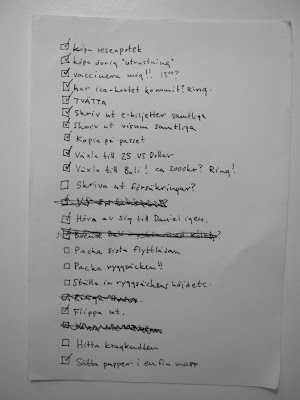 köpa reseapotek
köpa övrig "utrustning"
vaccinera mig!! 13⁰⁰?
har ica-kortet kommit? Ring.
TVÄTTA
Skriv ut e-biljetter samtliga
skriv ut visum samtliga
Kopia på passet
Växla till 25 US Dollar
Växla till Bali! ca 2000kr? Ring!
Skriva ut försäkringar?
Höra av sig till Daniel igen.
Boende Bali
Packa sista flyttlådan
Packa ryggsäcken!!
Ställa in ryggsäckens höjd etc.
Flippa ut.
Hitta kragkudden
Sätta papper i en fin mapp